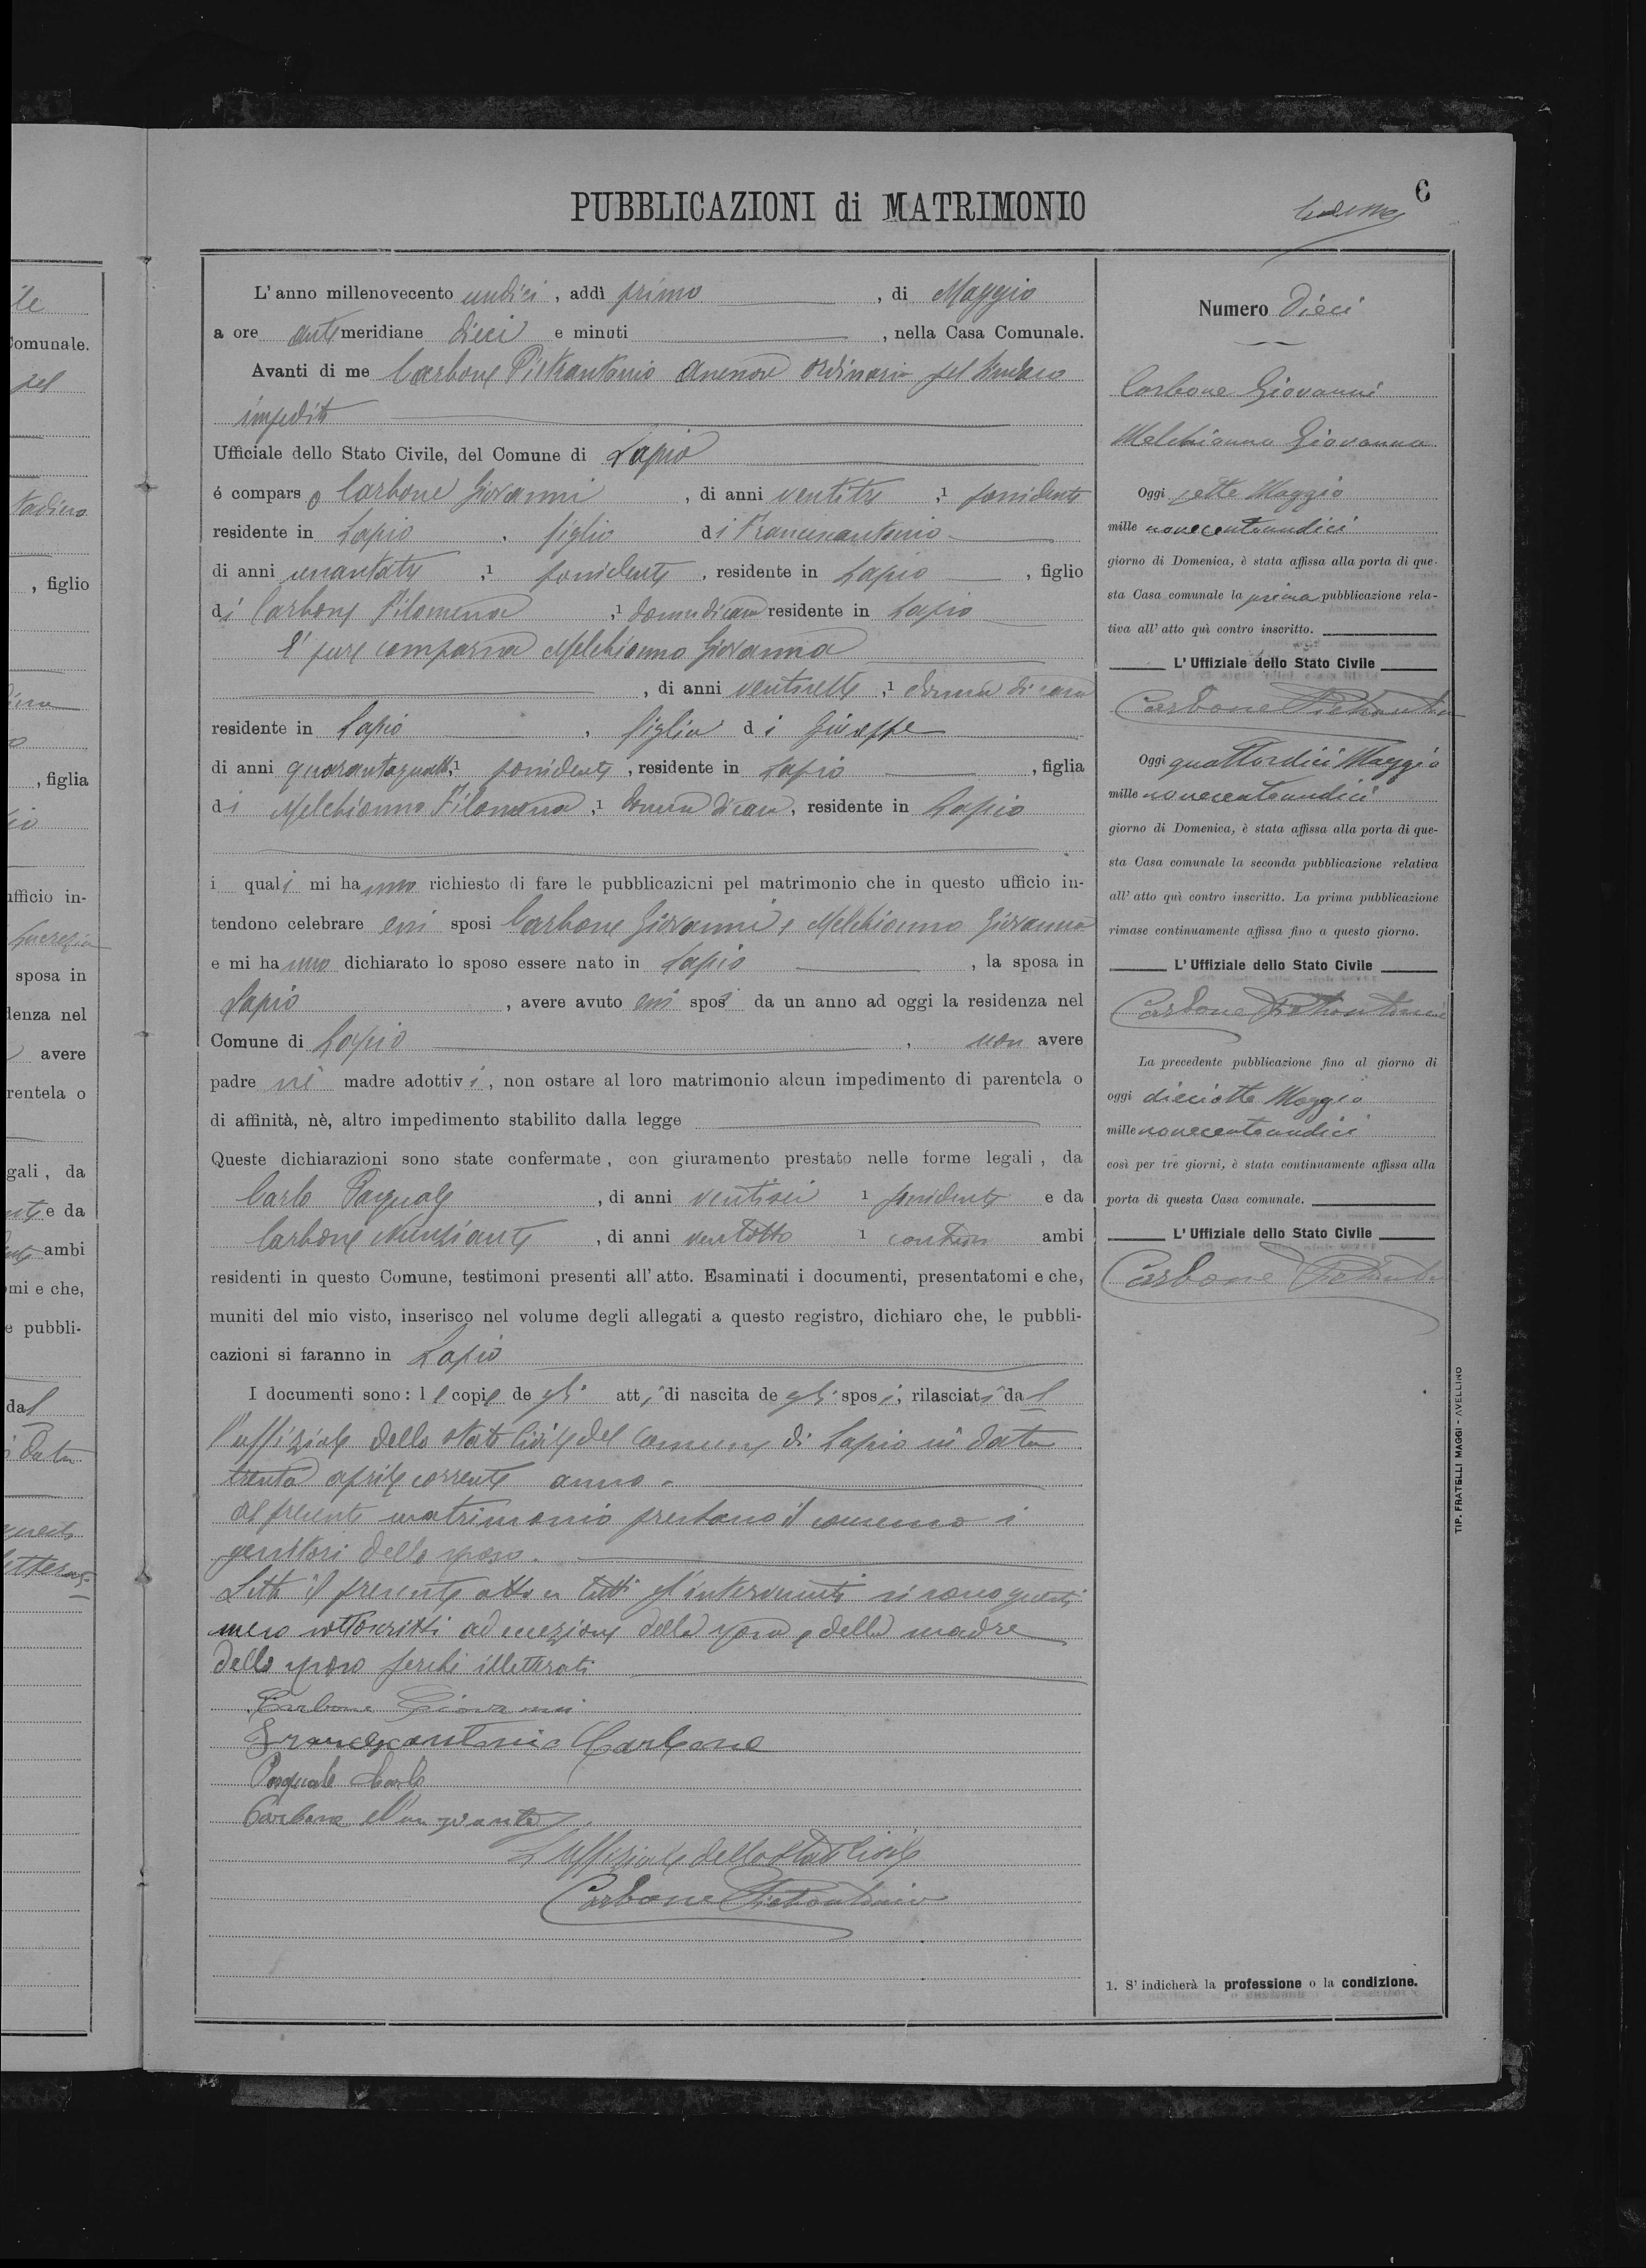 PUBBLICAZIONI di MATRIMONIO
6
L'anno millenovecento undici, addì primo, di Maggio
a ore antimeridiane dieci e minuti, nella Casa Comunale.
Avanti di me Carbone Pietrantonio Assessore ordinario pel Sindaco
impedito
Ufficiale dello Stato Civile, del Comune di Lapio
é comparso Carbone Giovanni, di anni ventitre,1 possidente
residente in Lapio, figlio di Francescantonio
di anni,1 possidente, residente in Lapio, figlio
di Carbone Filomena,1 donna di casa residente in Lapio
E' pure comparsa Melchionno Giovanna
, di anni ventisette,1 donna di casa
residente in Lapio, figlia di Giuseppe
di anni quarantaquattro,1 possidente, residente in Lapio, figlia
di Melchionno Filomena,1 donna di casa, residente in Lapio
i quali mi hanno richiesto di fare le pubblicazioni pel matrimonio che in questo ufficio in-
tendono celebrare essi sposi Carbone Giovanni e Melchionno Giovanna
e mi hanno dichiarato lo sposo essere nato in Lapio, la sposa in
Lapio, avere avuto essi sposi da un anno ad oggi la residenza nel
Comune di Lapio, non avere
padre nè madre adottivi, non ostare al loro matrimonio alcun impedimento di parentela o
di affinità, nè, altro impedimento stabilito dalla legge
Queste dichiarazioni sono state confermate, con giuramento prestato nelle forme legali, da
Carlo Pasquale, di anni ventisei 1 possidente e da
Carbone Nunziante, di anni ventotto 1 ambi
residenti in questo Comune, testimoni presenti all'atto. Esaminati i documenti, presentatomi e che,
muniti del mio visto, inserisco nel volume degli allegati a questo registro, dichiaro che, le pubbli-
cazioni si faranno in Lapio
I documenti sono: le copie degli atti di nascita degli sposi, rilasciati dal
l'uffiziale dello stato Civile del comune di Lapio in data
trenta aprile corrente anno.
Al presente matrimonio prestano il consenso i
genitori dello sposo.
Letto il presente atto a tutti gl'intervenuti si sono questi
meco sottoscritti ad eccezione della sposa e della madre
dello sposo perchè illetterati
Carbone Giovanni
Francescantonio Carbone
Pasquale Carlo
Carbone Nunziante
L'Uffiziale dello Stato Civile
Carbone Pietrantonio
Numero Dieci
Carbone Giovanni
Melchionno Giovanna
Oggi sette Maggio
mille novecentoundici
giorno di Domenica, è stata affissa alla porta di que-
sta Casa comunale la prima pubblicazione rela-
tiva all'atto quì contro inscritto.
L'Uffiziale dello Stato Civile
Carbone Pietrantonio
Oggi quattordici Maggio
mille novecentoundici
giorno di Domenica, è stata affissa alla porta di que-
sta Casa comunale la seconda pubblicazione relativa
all'atto quì contro inscritto. La prima pubblicazione
rimase continuamente affissa fino a questo giorno.
L'Uffiziale dello Stato Civile
Carbone Pietrantonio
La precedente pubblicazione fino al giorno di
oggi dieciotto Maggio
mille novecentoundici
così per tre giorni, è stata continuamente affissa alla
porta di questa Casa comunale.
L'Uffiziale dello Stato Civile
Carbone Pietrantonio
1. S'indicherà la professione o la condizione.
TIP. FRATELLI MAGGI - AVELLINO
omunale.
, figlio
, figlia
ufficio in-
sposa in
denza nel
avere
rentela o
gali, da
e da
ambi
omi e che,
e pubbli-
dal